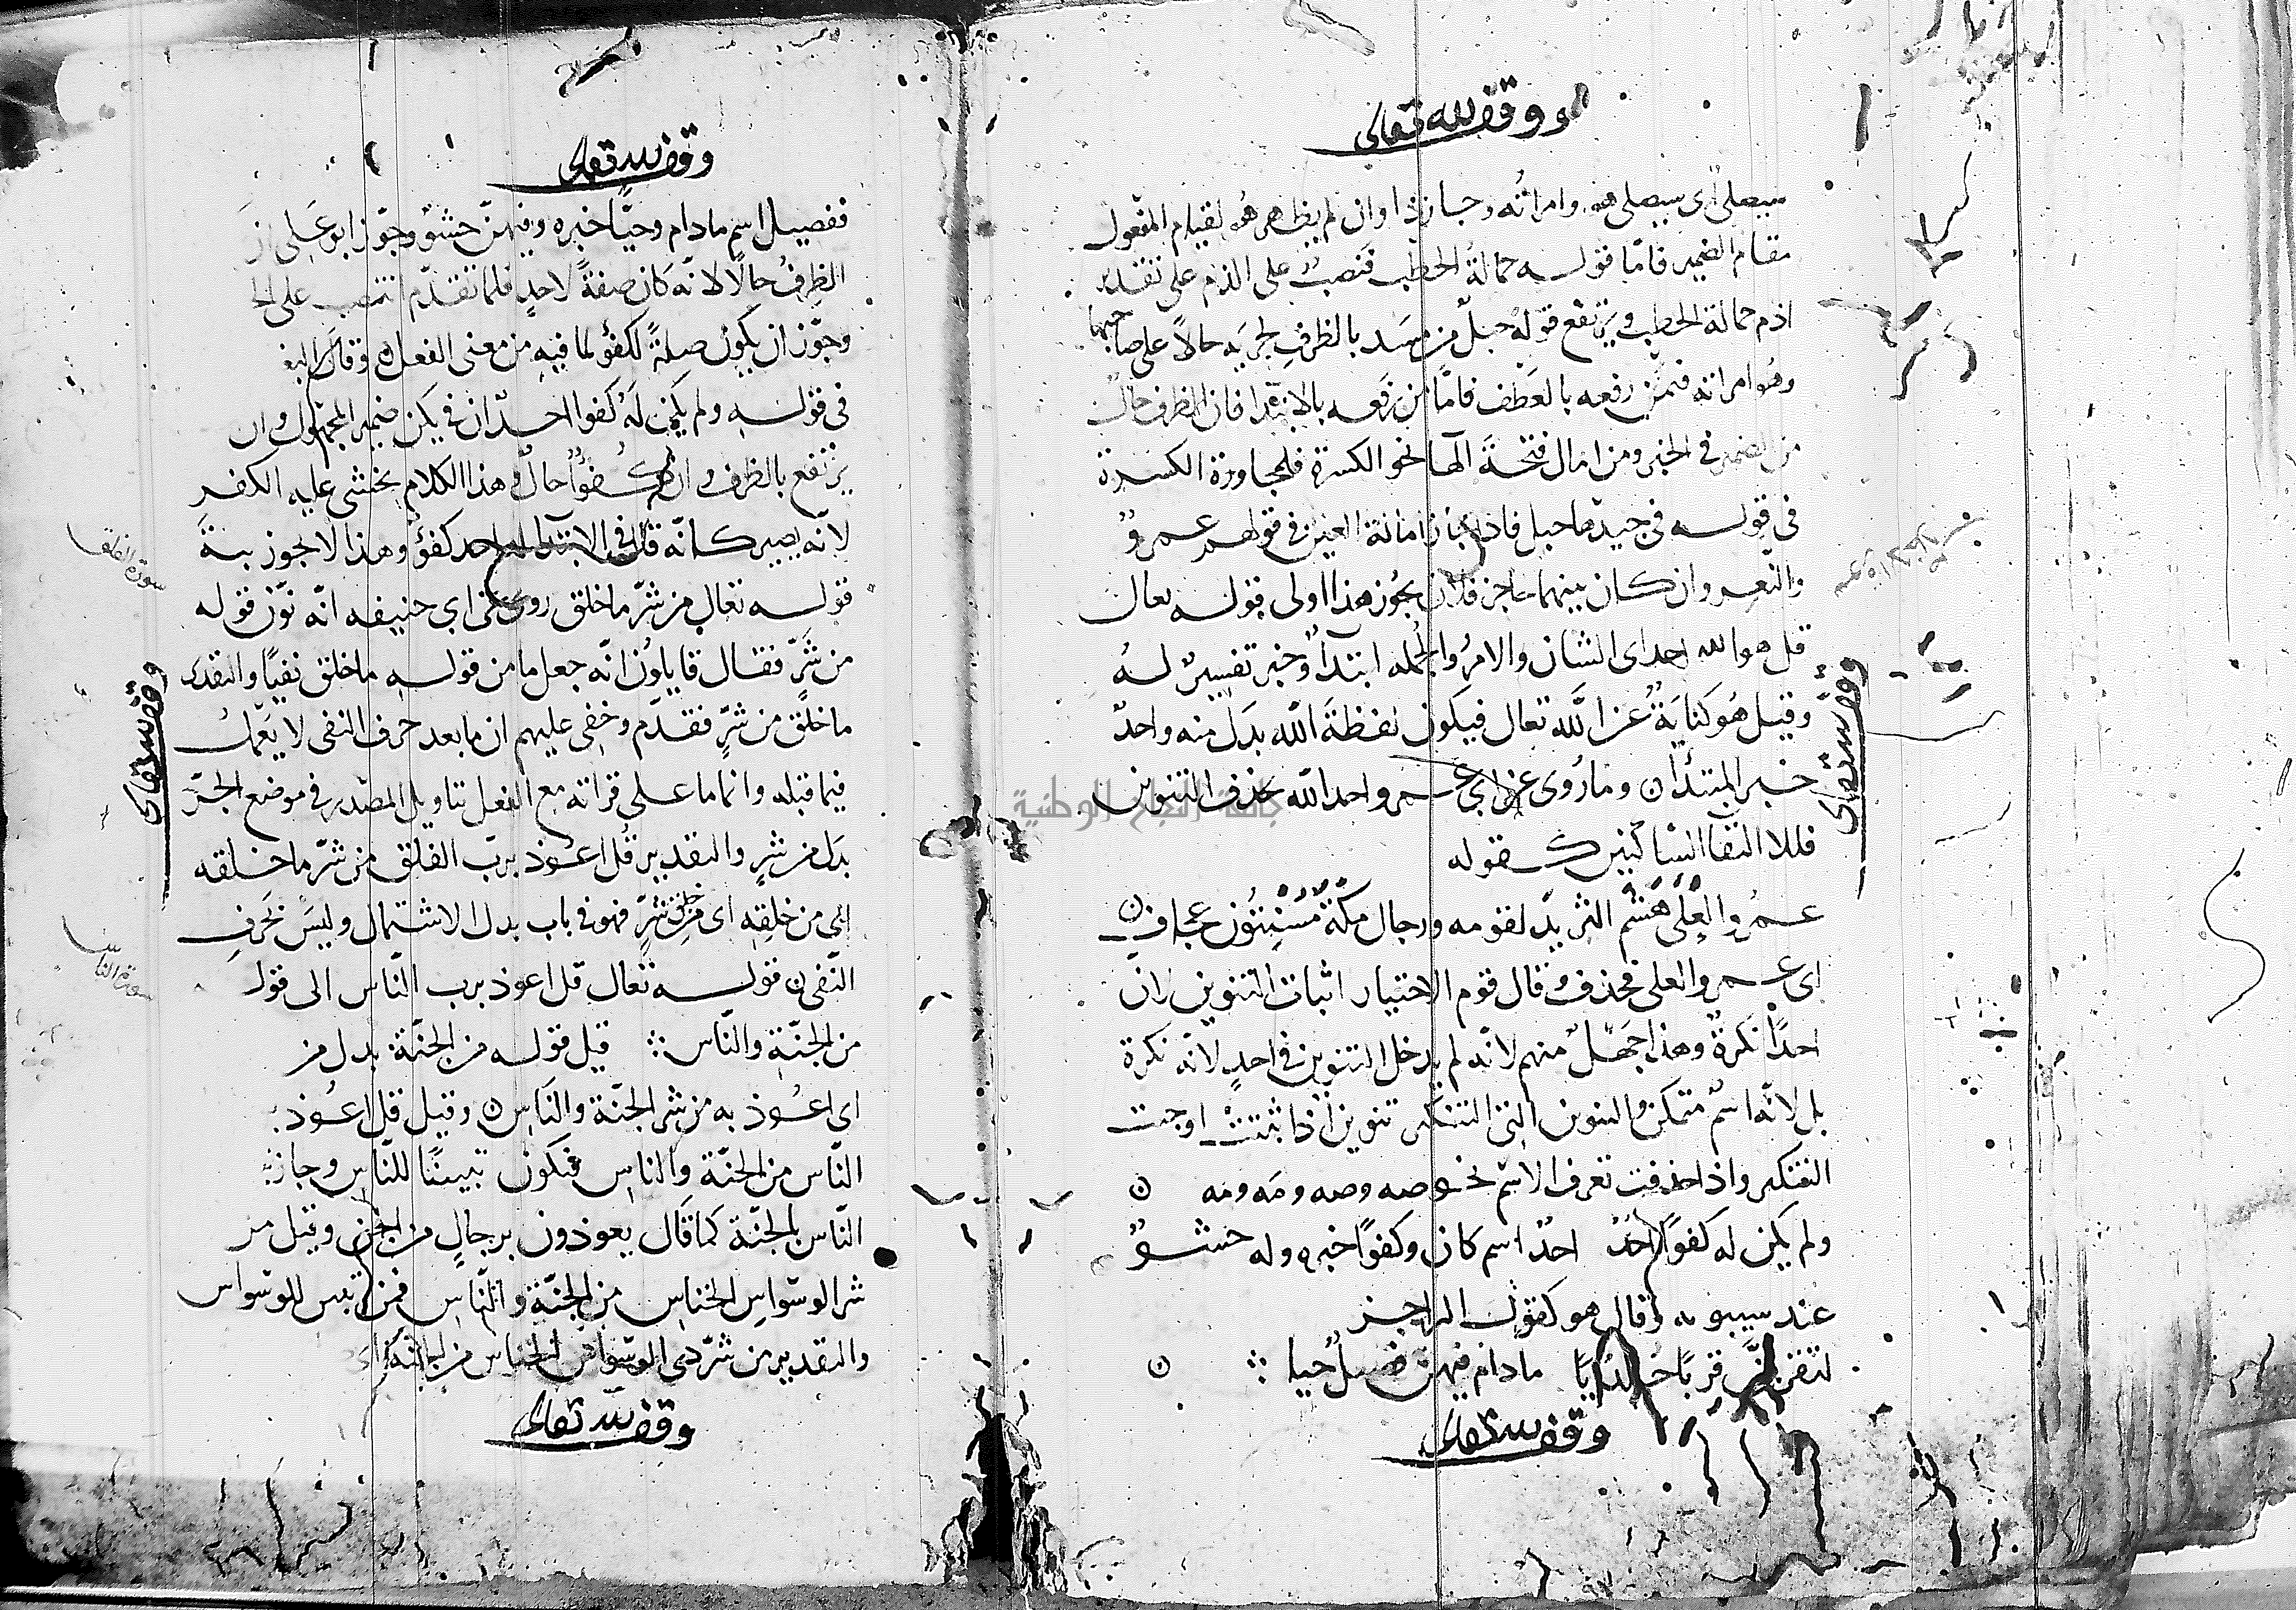 وقف لله تعالى
سيصلى اى سيصلى هو وامراته وجاز ذا وان لم يظهر هو لقيام المفعول
مقام الضمير فامّا قوله حمالة الحطب فنصبٌ على الذم على تقدير
اذم حمالة الحطب ويرتفع قوله حبلٌ من مسد بالظرف لجريه حالاً على صاحبها
وهو امراته فيمن رفعه بالعطف فامّا من رفعه بالابتدا فان الظرف حال
من الضمير فى الخبر ومن امال فتحة الها نحو الكسرة فلمجاورة الكسرة
فى قوله فى جيدها حبل فاذا جاز امالة العين فى قولهم عمرو
والنعر وان كان بينهما حاجز فلان يجوز هذا اولى قوله تعالى
قل هو الله احد اى الشان والامرُ والجمله ابتدآ وخبر تفسيرٌ لهُ
وقيل هُو كنايةٌ عن اللّه تعالى فيكون لفظة اللّه بدل منه واحدٌ
خبر المبتدأ ن وما رُوى عن ابى عمرو احد اللّه بحذف التنوين
فللالتقا السّاكنين كقوله
عمرُو العُلى هَشَم الثريدَ لقومه ورجال مكّة مُسْنِتُون عجاف ن
اى عمرو العلى فحذف وقال قوم الاختيار اثبات التنوين لانّ
احدًا نكرةٌ وهذا جَهلٌ منهم لانّه لم يدخل التنوين فى احدٍ لانّه نكرة
بل لانّه اسمٌ متمكن والتنوين التى للتنكير تنوين اذا ثبتتْ اوجبت
التنكير واذا حذفت تعرف الاسم نحو صه وصه ومَه ومه ن
ولم يكن له كفوًا احدٌ احدٌ اسم كان وكفوًا خبره وله حشوٌ
عند سيبويه وقال هو كقول الراجز
لتقربن قربًا جلذيًا مادام فيهن فصيل حيا ن
وقف لله تعالى
وقف لله تعالى
وقف لله تعالى
ففصيل اسم مادام وحيّا خبره وفيهنّ حشوٌ وجوّز ابو على ان
الظرفُ حالًا لانّه كان صفةً لاحدٍ فلما تقدّم انتصب على الحا
وجوّز ان يكون صلةً لكفوٍ لما فيه من معنى الفعل ن وقال
فى قوله ولم يكن له كُفوا احدٌ ان فى يكن ضمير المجهول وان
يرتفع بالظرف وان كفوًا حال وهذا الكلام يخشى عليه الكفر
لانّه يصير كانّه قال فى الابتدا له احد كفؤ وهذا لا يجوز بتةً
قوله تعالى من شرّ ما خلق روى عن ابى حنيفه انّه نوّن قوله
من شَرٍّ فقال قايلون انّه جعل ما من قوله ما خلق نفيًا والتقدير
ما خلق من شرٍّ فقدّم وخفى عليهم ان ما بعد حرف النفى لا يعملُ
فيما قبله وانما ما على قراته مع الفعل بتاويل المصدر فى موضع الجرّ
بدَل من شرٍ والتقدير قُل اعوذ بربّ الفلق من شرّ ما خلقه
اى من خلقِه اى من خلقٍ شرٍّ فهو فى باب بدل الاشتمال وليسَ بحرفِ
النّفى ن قوله تعالى قل اعوذ برب النّاس الى قوله
من الجنّة والنّاس قيل قوله من الجنّة بدل من
اى اعوذ به من شر الجنّة والنّاسِ ن وقيل قل اعوذ
النّاس من الجنّة والناسِ فتكون تبيينًا للنّاس وجاز
النّاس بالجنّة كما قَال يعوذون برجالٍ من الجن وقيل من
شر الوسواسِ الخناسِ من الجنّةِ والنّاسِ فمن تفسير للوسواس
والتقدير من شرّ ذى الوسواس الخناس من الجنّة
وقف لله تعالى
سورة الفلق
وقف لله تعالى
سورة الناس
جامعة النجاح الوطنية